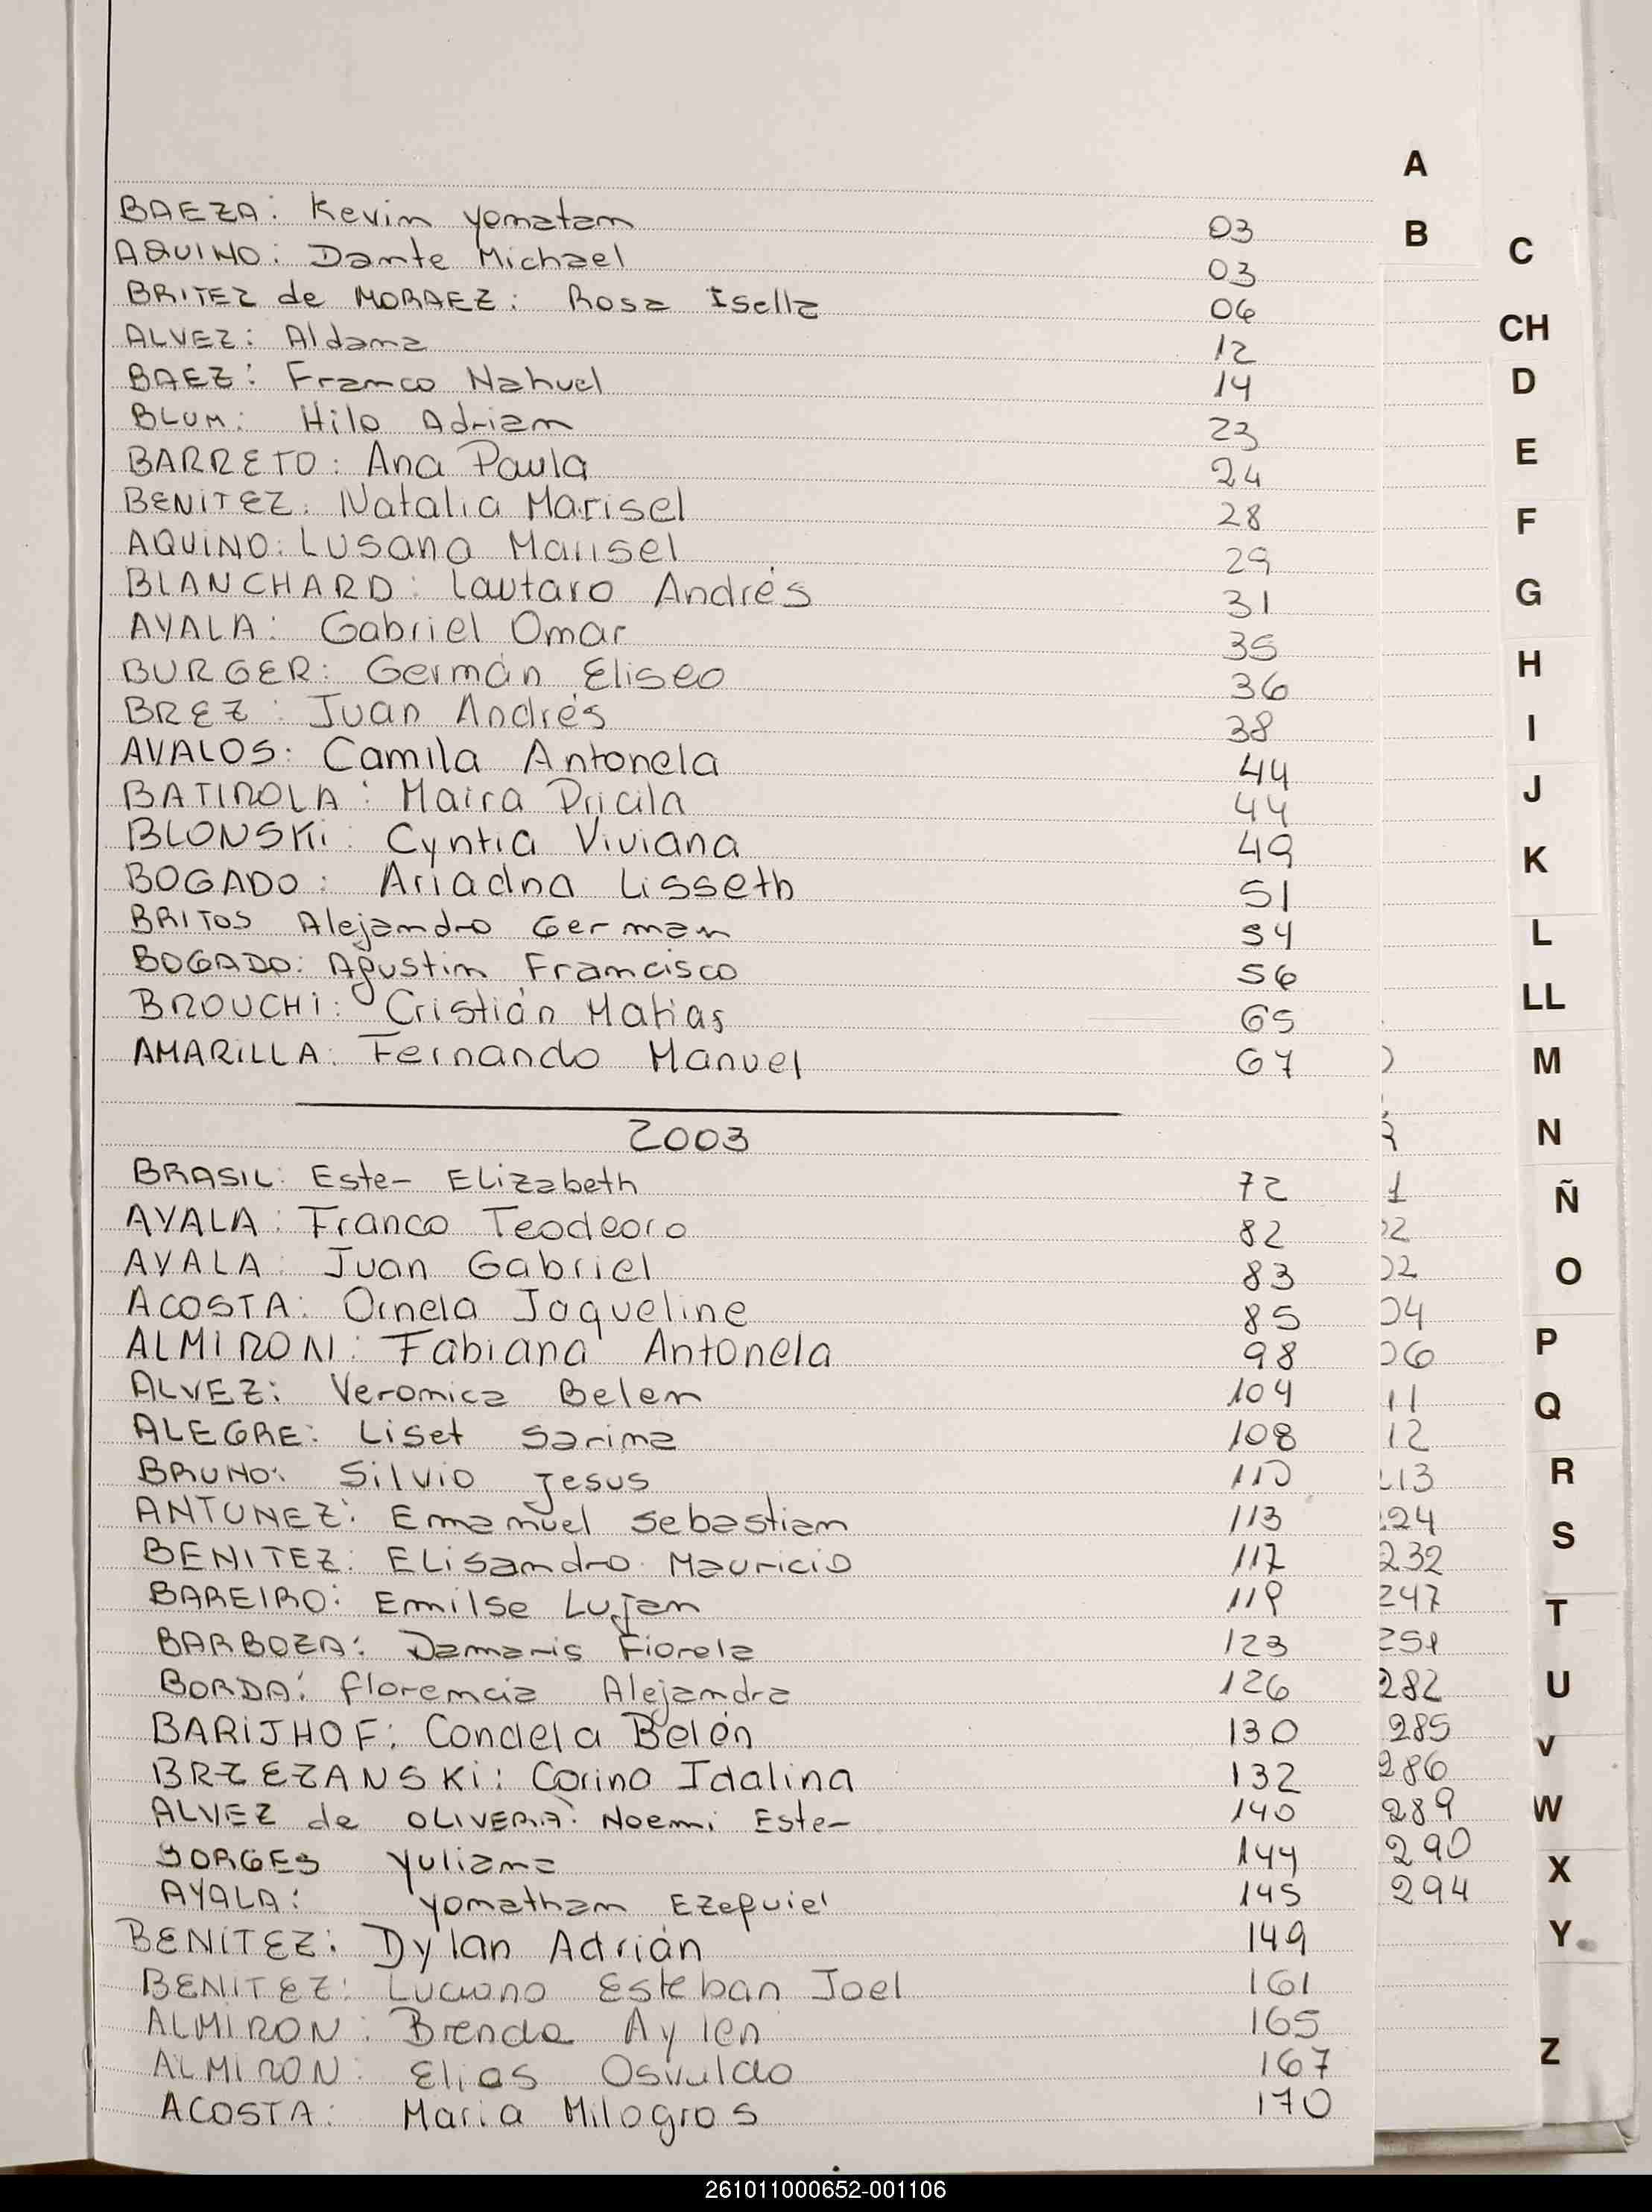 A
B
C
CH
D
E
F
G
H
I
J
K
L
LL
M
N
Ñ
O
P
Q
R
S
T
U
V
W
X
Y
Z
BAEZA: Kevin Yonatan 03
AQUINO: Dante Michael 03
BRITEZ de MORAEZ: Rosa Isella 06
ALVEZ: Aldana 12
BAEZ: Franco Nahuel 14
BLUM: Hilo Adrian 23
BARRETO: Ana Paula 24
BENITEZ: Natalia Marisel 28
AQUINO: Lusana Marisel 29
BLANCHARD: Lautaro Andrés 31
AYALA: Gabriel Omar 35
BURGER: Germán Eliseo 36
BREZ: Juan Andrés 38
AVALOS: Camila Antonela 44
BATIROLA: Maira Pricila 44
BLONSKI: Cyntia Viviana 49
BOGADO: Ariadna Lisseth 51
BRITOS Alejandro German 54
BOGADO: Agustin Francisco 56
BROUCHI: Cristián Matías 65
AMARILLA: Fernando Manuel 67
2003
BRASIL: Ester Elizabeth 72 1
AYALA: Franco Teodeoro 82 02
AYALA: Juan Gabriel 83 02
ACOSTA: Ornela Jaqueline 85 04
ALMIRON: Fabiana Antonela 98 06
ALVEZ: Veronica Belen 104 11
ALEGRE: Liset Sarima 108 12
BRUNO: Silvio Jesus 110 13
ANTUNEZ: Emanuel Sebastian 113 24
BENITEZ: Elisandro Mauricio 117 232
BAREIRO: Emilse Lujan 119 247
BARBOZA: Damaris Fiorela 123 251
BORDA: Florencia Alejandra 126 282
BARIJHOF: Candela Belén 130 285
BRZEZANSKI: Corina Idalina 132 286
ALVEZ de OLIVERA: Noemi Ester 140 289
BORGES Yuliana 144 290
AYALA: Yonathan Ezequiel 145 294
BENITEZ: Dylan Adrián 149
BENITEZ: Luciano Esteban Joel 161
ALMIRON: Brenda Aylen 165
ALMIRON: Elias Osvaldo 167
ACOSTA: Maria Milagros 170
261011000652-001106